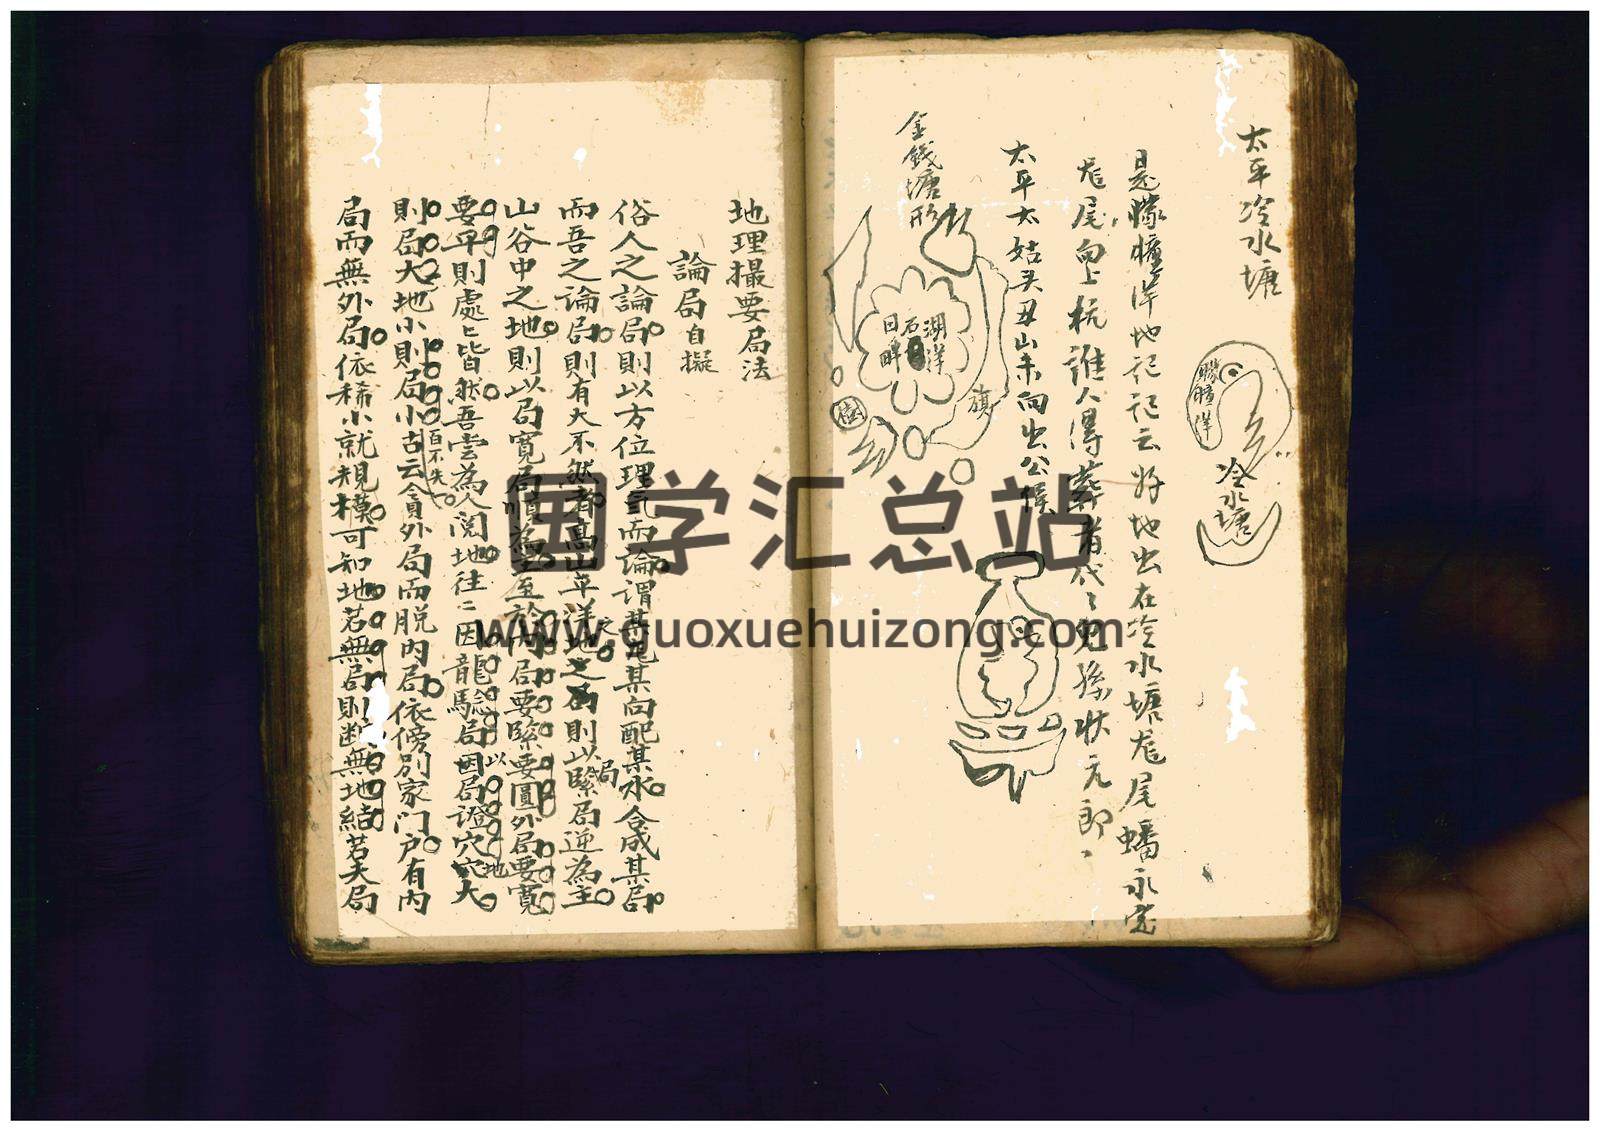 太平冷水塘
朦朣洋
冷水塘
是朦朣洋地记记云好地出在冷水塘尨尾蟠永
尨尾向上杭誰人得葬者代〻児孫状元郎
太平太姑头丑山未向出公侯
金錢塘形
湖洋
石
日畔
旗
地理撮要局法
論局自擬
俗人之論局則以方位理氣而論謂某龙某向配某水合成某局
而吾之論局則有大不然者高山平洋地之局則以緊局逆為主
山谷中之地則以局寬局情為主至於内局要緊要圓外局要寬
要平則處〻皆然吾嘗為人閱地往〻因龍騐局因局證穴穴大
以
地
則局大地小則局小古云貪外局而脱内局依傍别家門户有内
百不失一
局而無外局依稀小就規模可知地若無局則断無地結若夫局
国学汇总站
www.guoxuehuizong.com